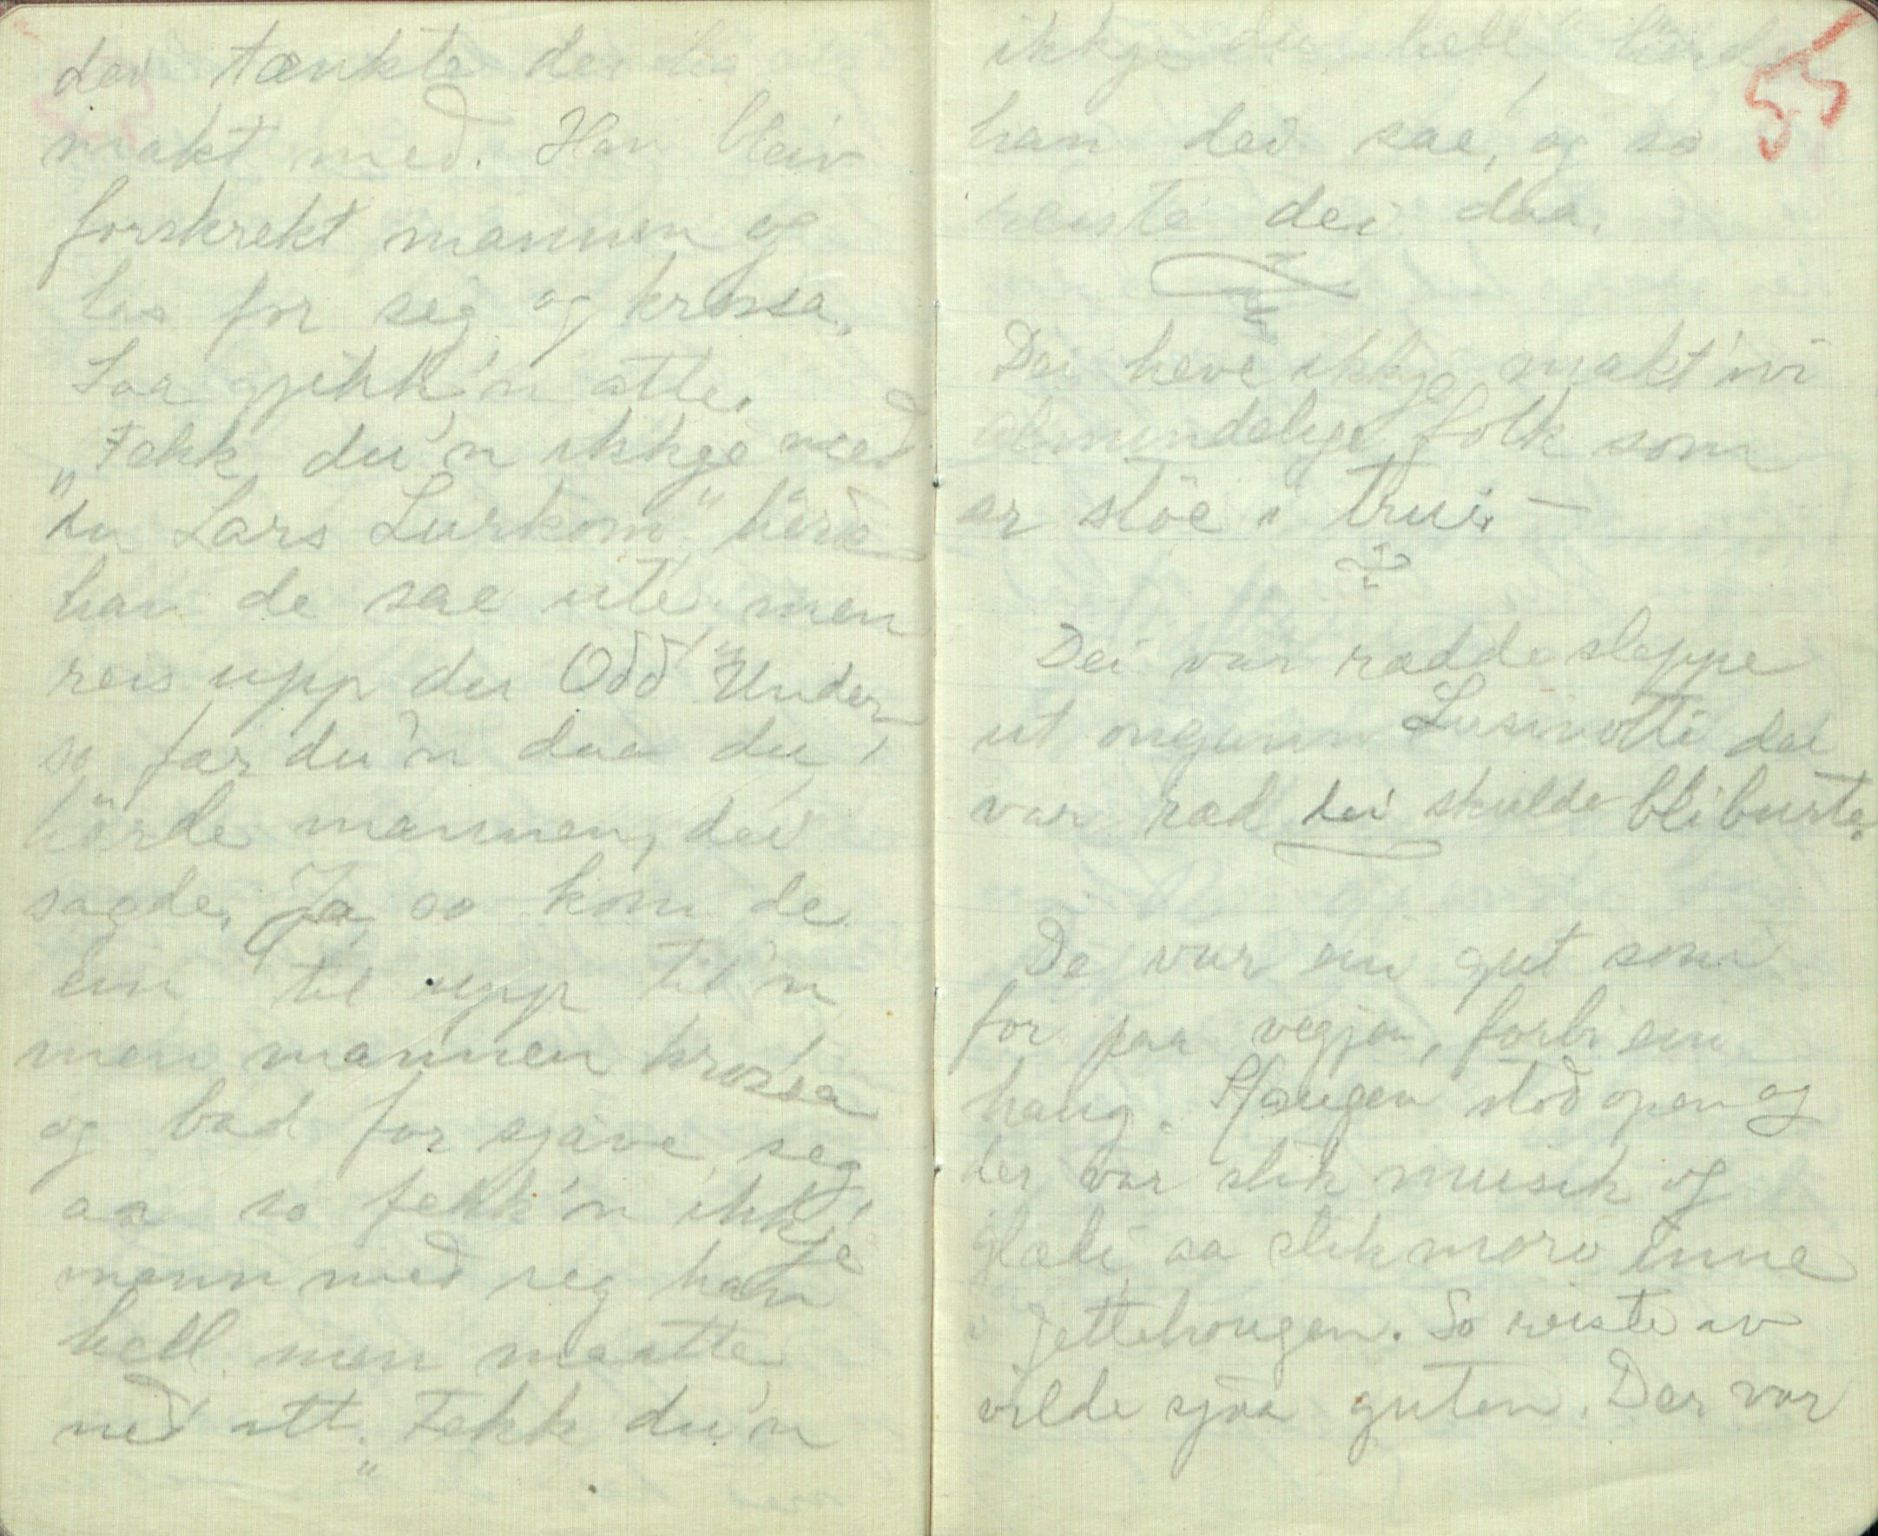 dei tænkte dei ha
makt med. Han bleiv
forskrekt mannen og
las for seg og krossa,
Saa gjikk'n atte.
„Fekk du'n ikkje með
du Lars Lurkom" hörde
han de sae ute, men
reis upp du Odd Under
so fær du'n daa du,
hörde mannen, dei
sagde. Ja so kom de
ein til upp til'n
men mannen krossa
og bad for sjave seg
aa so fekk'n ikkje
mann með seg han
hell men maatte
neð att. „Fekk du'n
ikkje du hell" hörde
han dei sae, og so
reiste dei daa.
55
Dei heve ikkje makt ivi
almindelige folk som
er stöe i trui. —
Dei var rædde sleppe
ut ongann Lusinotti dei
var ræd dei skulde bli burte.
De var ein gut som
for paa vegjen, forbi ein
haug. Haugen stod open og
der var slik musik og
glæde, aa slik moro inne
i Jettehougen. So reiste av
vilde sjaa guten. Der var